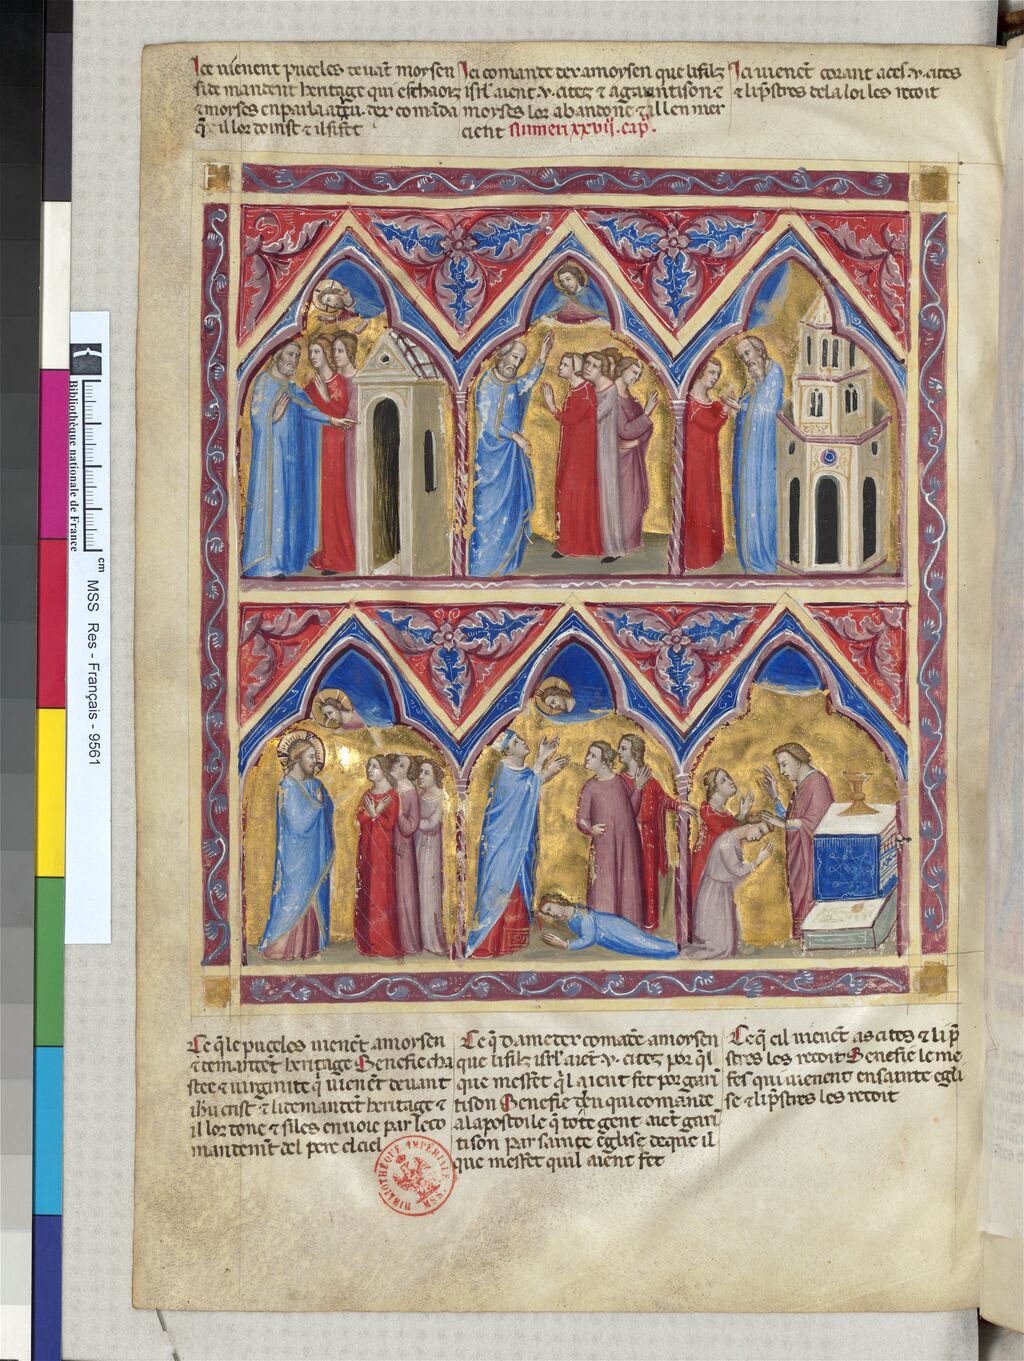 Ice vienent puceles devāt moysen
si demandent heritage qui eschaoiz
& moyses en parla a deu. der comāda
q̄ il lor doinst & il si fet
Ici comande dex a moysen que li filz
isrl' aient .v. citez & a garantison &
moyses lor abandone & il len mer
cient Numeri xxvij. cap̄.
Ici vienēt corant a ces .v. cites
& li p̄stres de la loi les recoit
Ce q̄ le puceles vienēt a moysen
& demandēt heritage Senefie cha
stee & virginite q̄ vienēt devant
ihu crist & li demandēt heritage &
il lor done & si les envoie par le co
mandemt̄ del pere del ciel
Ce q̄ dameder comāde a moysen
que li filz isrl' aiēt .v. citez por q̄l
que meffet q̄l aient fet por gari
tison Senefie deu qui comande
a lapostoile q̄ tote gent aiēt gari
tison par sainte eglise de que il
que meffet quil aient fet
Ce q̄ cil vienēt as cites & li p̄
stres les recoit Senefie le me
fes qui vienent en sainte egli
se & li p̄stres les recoit
BIBLIOTHÈQUE IMPÉRIALE MSS.
Bibliothèque nationale de France
cm
MSS Res - Français - 9561